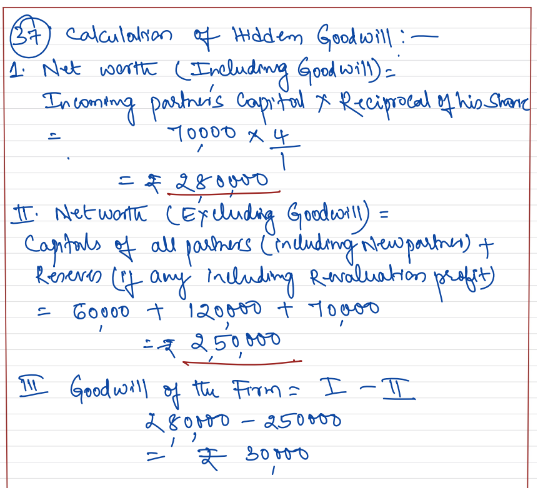 37 Calculation of Hidden Goodwill :—
1. Net worth (Including Goodwill) =
Incoming partner's Capital x Reciprocal of his share
= 70,000 x 4/1
= ₹ 2,80,000
II. Net worth (Excluding Goodwill) =
Capitals of all partners (including New partner) +
Reserves (if any including Revaluation profit)
= 60,000 + 120,000 + 70,000
= ₹ 2,50,000
III Goodwill of the Firm = I - II
2,80,000 - 250000
= ₹ 30,000